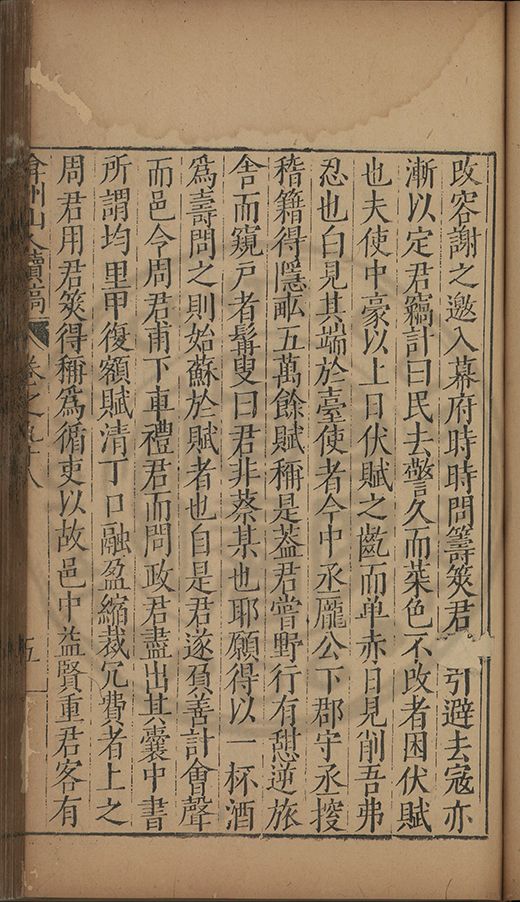 改容謝之邀入幕府時時問籌筴君引避去寇亦
漸以定君竊計曰民去警久而菜色不改者困伏賦
也夫使中豪以上日伏賦之齕而单赤日見削吾弗
忍也白見其端於臺使者今中丞龐公下郡守丞挍
稽籍得隱畝五萬餘賦稱是葢君嘗野行有憇逆旅
舍而窺戸者髯叟曰君非蔡某也耶願得以一杯酒
爲壽問之則始蘇於賦者也自是君遂負善計會聲
而邑令周君甫下車禮君而問政君盡出其囊中書
所謂均里甲復額賦清丁口融盈縮裁冗費者上之
周君用君筴得稱爲循吏以故邑中益賢重君客有
弇州山人續稿 卷之九十八 五